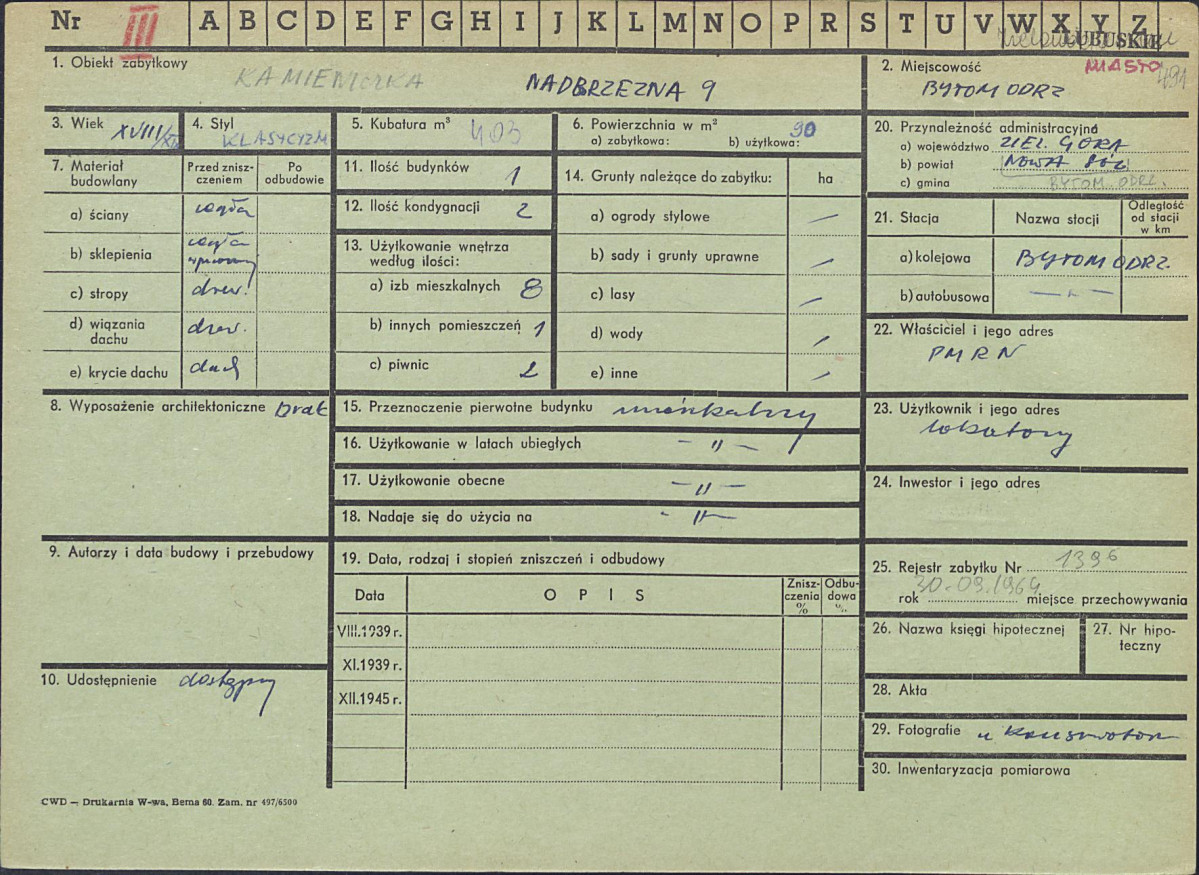 Nr III A B C D E F G H I J K L M N O P R S T U V W X Y Z
LUBUSKIE
1. Obiekt zabytkowy KAMIENICZKA NADBRZEZNA 9
2. Miejscowość MIASTO 491
BYTOM ODRZ
3. Wiek XVIII/XIX
4. Styl KLASYCYZM
5. Kubatura m³ 403
6. Powierzchnia w m² 90
a) zabytkowa: b) użytkowa:
20. Przynależność administracyjna
a) województwo ZIEL. GÓRA
b) powiat NOWA SÓL
c) gmina BYTOM ODRZ.
7. Materiał budowlany
Przed zniszczeniem
Po odbudowie
a) ściany cegła
b) sklepienia cegła
c) stropy drew.
d) wiązania dachu drew.
e) krycie dachu dach
11. Ilość budynków 1
12. Ilość kondygnacji 2
13. Użytkowanie wnętrza
według ilości:
a) izb mieszkalnych 8
b) innych pomieszczeń 1
c) piwnic 2
14. Grunty należące do zabytku: ha
a) ogrody stylowe —
b) sady i grunty uprawne —
c) lasy —
d) wody —
e) inne —
21. Stacja
Nazwa stacji
Odległość
od stacji
w km
a) kolejowa BYTOM ODRZ.
b) autobusowa — " —
22. Właściciel i jego adres
PMRN
8. Wyposażenie architektoniczne brak
15. Przeznaczenie pierwotne budynku mieszkalny
16. Użytkowanie w latach ubiegłych — " —
17. Użytkowanie obecne — " —
18. Nadaje się do użycia na — " —
23. Użytkownik i jego adres
lokatorzy
24. Inwestor i jego adres
9. Autorzy i data budowy i przebudowy
19. Data, rodzaj i stopień zniszczeń i odbudowy
Data
OPIS
Zniszczenia %
Odbudowa %
VIII.1939 r.
XI.1939 r.
XII.1945 r.
25. Rejestr zabytku Nr 1396
rok 30-09.1964 miejsce przechowywania
26. Nazwa księgi hipotecznej
27. Nr hipoteczny
10. Udostępnienie dostępny
28. Akta
29. Fotografie u Konserwatora
30. Inwentaryzacja pomiarowa
CWD — Drukarnia W-wa, Bema 60. Zam. nr 497/6500